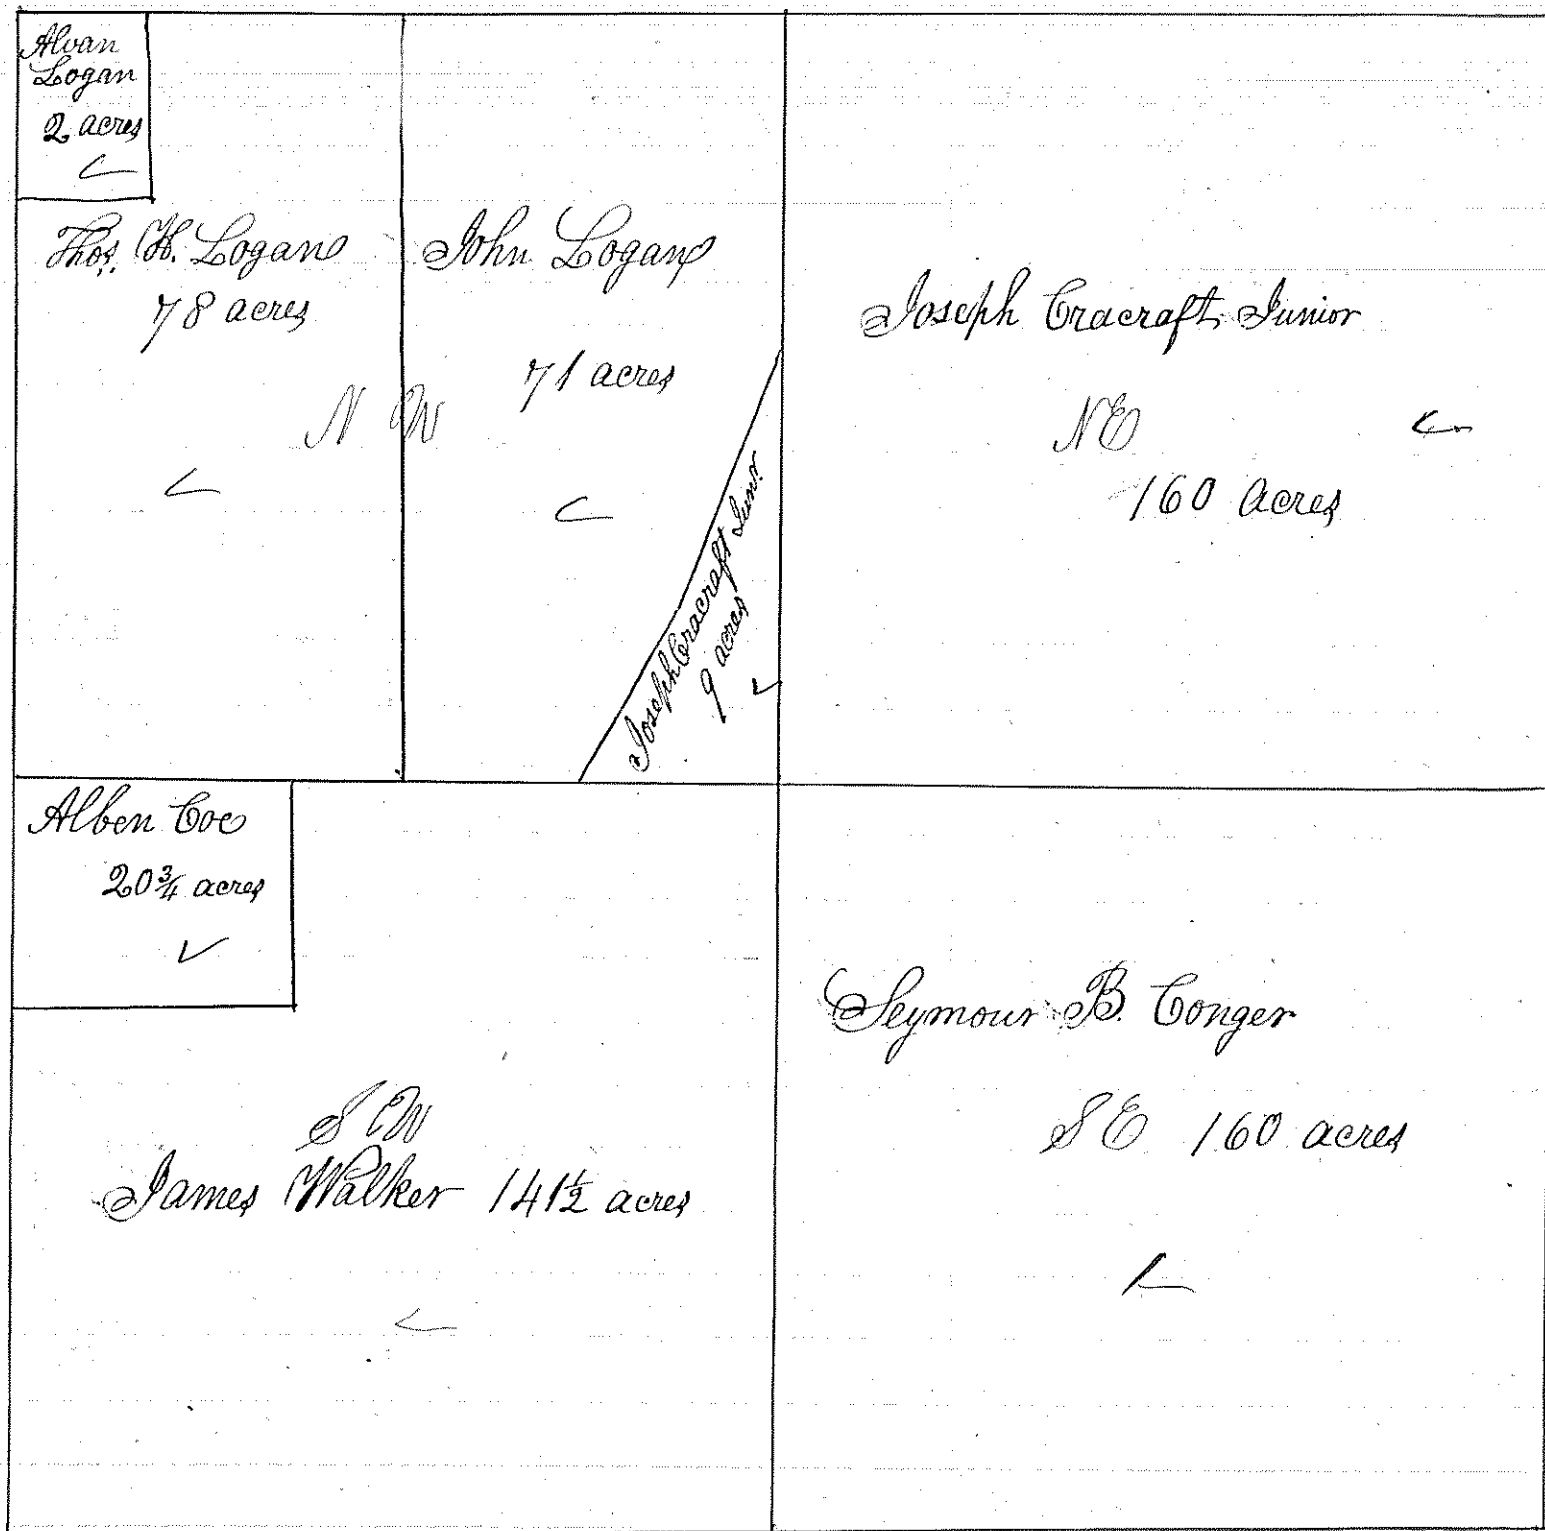 Alvan
Logan
2 acres
Thos. H. Logan
78 acres
John Logan
71 acres
N W
Joseph Cracraft Junr.
9 acres
Joseph Cracraft Junior
NE
160 acres
Alben Coe
20 3/4 acres
S W
James Walker 141 1/2 acres
Seymour B. Conger
S E 160 acres